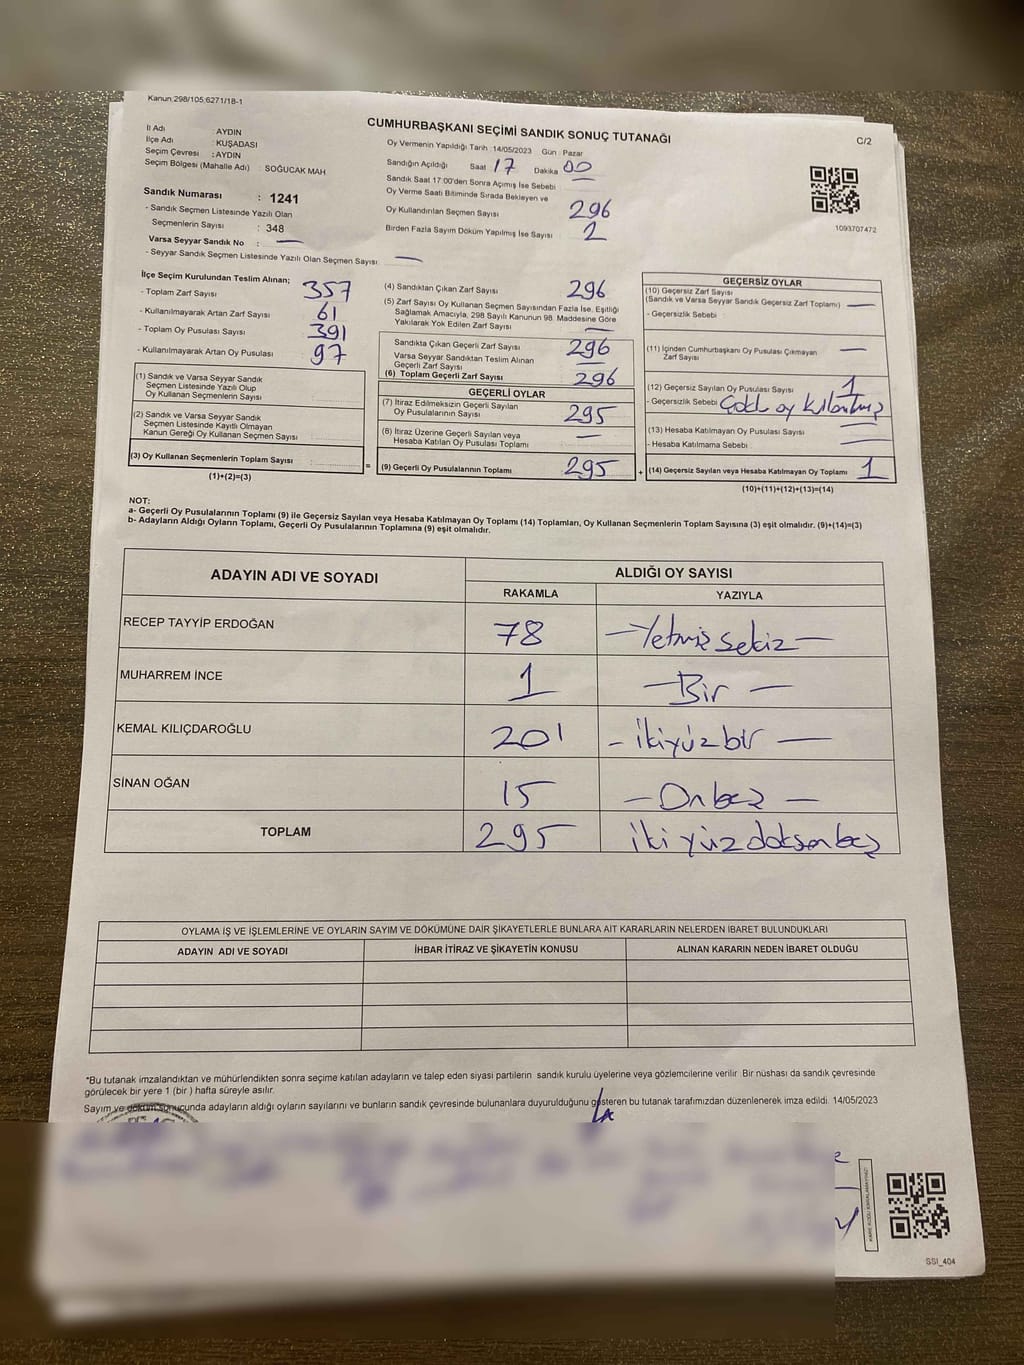 Kanun,298/105,6271/18-1
CUMHURBAŞKANI SEÇİMİ SANDIK SONUÇ TUTANAĞI
C/2
İl Adı : AYDIN
İlçe Adı : KUŞADASI
Seçim Çevresi : AYDIN
Seçim Bölgesi (Mahalle Adı) : SOĞUCAK MAH
Sandık Numarası : 1241
- Sandık Seçmen Listesinde Yazılı Olan
Seçmenlerin Sayısı : 348
Varsa Seyyar Sandık No : —
- Seyyar Sandık Seçmen Listesinde Yazılı Olan Seçmen Sayısı: —
Oy Vermenin Yapıldığı Tarih :14/05/2023 Gün : Pazar
Sandığın Açıldığı Saat 17 Dakika 00
Sandık Saat 17:00'den Sonra Açımış İse Sebebi : —
Oy Verme Saati Bitiminde Sırada Bekleyen ve
Oy Kullandırılan Seçmen Sayısı 296
Birden Fazla Sayım Döküm Yapılmış İse Sayısı 2
1093707472
İlçe Seçim Kurulundan Teslim Alınan;
- Toplam Zarf Sayısı 357
- Kullanılmayarak Artan Zarf Sayısı 61
- Toplam Oy Pusulası Sayısı 391
- Kullanılmayarak Artan Oy Pusulası 97
(1) Sandık ve Varsa Seyyar Sandık
Seçmen Listesinde Yazılı Olup
Oy Kullanan Seçmenlerin Sayısı
(2) Sandık ve Varsa Seyyar Sandık
Seçmen Listesinde Kayıtlı Olmayan
Kanun Gereği Oy Kullanan Seçmen Sayısı
(3) Oy Kullanan Seçmenlerin Toplam Sayısı
(1)+(2)=(3)
=
(4) Sandıktan Çıkan Zarf Sayısı 296
(5) Zarf Sayısı Oy Kullanan Seçmen Sayısından Fazla İse, Eşitliği
Sağlamak Amacıyla, 298 Sayılı Kanunun 98. Maddesine Göre
Yakılarak Yok Edilen Zarf Sayısı —
Sandıkta Çıkan Geçerli Zarf Sayısı 296
Varsa Seyyar Sandıktan Teslim Alınan
Geçerli Zarf Sayısı
(6) Toplam Geçerli Zarf Sayısı 296
GEÇERLİ OYLAR
(7) İtiraz Edilmeksizin Geçerli Sayılan
Oy Pusulalarının Sayısı 295
(8) İtiraz Üzerine Geçerli Sayılan veya
Hesaba Katılan Oy Pusulası Toplamı —
(9) Geçerli Oy Pusulalarının Toplamı 295
+
GEÇERSİZ OYLAR
(10) Geçersiz Zarf Sayısı
(Sandık ve Varsa Seyyar Sandık Geçersiz Zarf Toplamı) —
- Geçersizlik Sebebi :
(11) İçinden Cumhurbaşkanı Oy Pusulası Çıkmayan
Zarf Sayısı —
(12) Geçersiz Sayılan Oy Pusulası Sayısı 1
- Geçersizlik Sebebi : oy
(13) Hesaba Katılmayan Oy Pusulası Sayısı —
- Hesaba Katılmama Sebebi : —
(14) Geçersiz Sayılan veya Hesaba Katılmayan Oy Toplamı 1
(10)+(11)+(12)+(13)=(14)
NOT:
a- Geçerli Oy Pusulalarının Toplamı (9) ile Geçersiz Sayılan veya Hesaba Katılmayan Oy Toplamı (14) Toplamları, Oy Kullanan Seçmenlerin Toplam Sayısına (3) eşit olmalıdır. (9)+(14)=(3)
b- Adayların Aldığı Oyların Toplamı, Geçerli Oy Pusulalarının Toplamına (9) eşit olmalıdır.
ADAYIN ADI VE SOYADI ALDIĞI OY SAYISI
RAKAMLA YAZIYLA
RECEP TAYYİP ERDOĞAN 78 — Yetmiş sekiz —
MUHARREM İNCE 1 — Bir —
KEMAL KILIÇDAROĞLU 201 - ikiyüz bir —
SİNAN OĞAN 15 — Onbeş —
TOPLAM 295 iki yüz doksan beş
OYLAMA İŞ VE İŞLEMLERİNE VE OYLARIN SAYIM VE DÖKÜMÜNE DAİR ŞİKAYETLERLE BUNLARA AİT KARARLARIN NELERDEN İBARET BULUNDUKLARI
ADAYIN ADI VE SOYADI İHBAR İTİRAZ VE ŞİKAYETİN KONUSU ALINAN KARARIN NEDEN İBARET OLDUĞU
*Bu tutanak imzalandıktan ve mühürlendikten sonra seçime katılan adayların ve talep eden siyasi partilerin sandık kurulu üyelerine veya gözlemcilerine verilir. Bir nüshası da sandık çevresinde
görülecek bir yere 1 (bir ) hafta süreyle asılır.
Sayım ve döküm sonucunda adayların aldığı oyların sayılarını ve bunların sandık çevresinde bulunanlara duyurulduğunu gösteren bu tutanak tarafımızdan düzenlenerek imza edildi. 14/05/2023
SSI_404